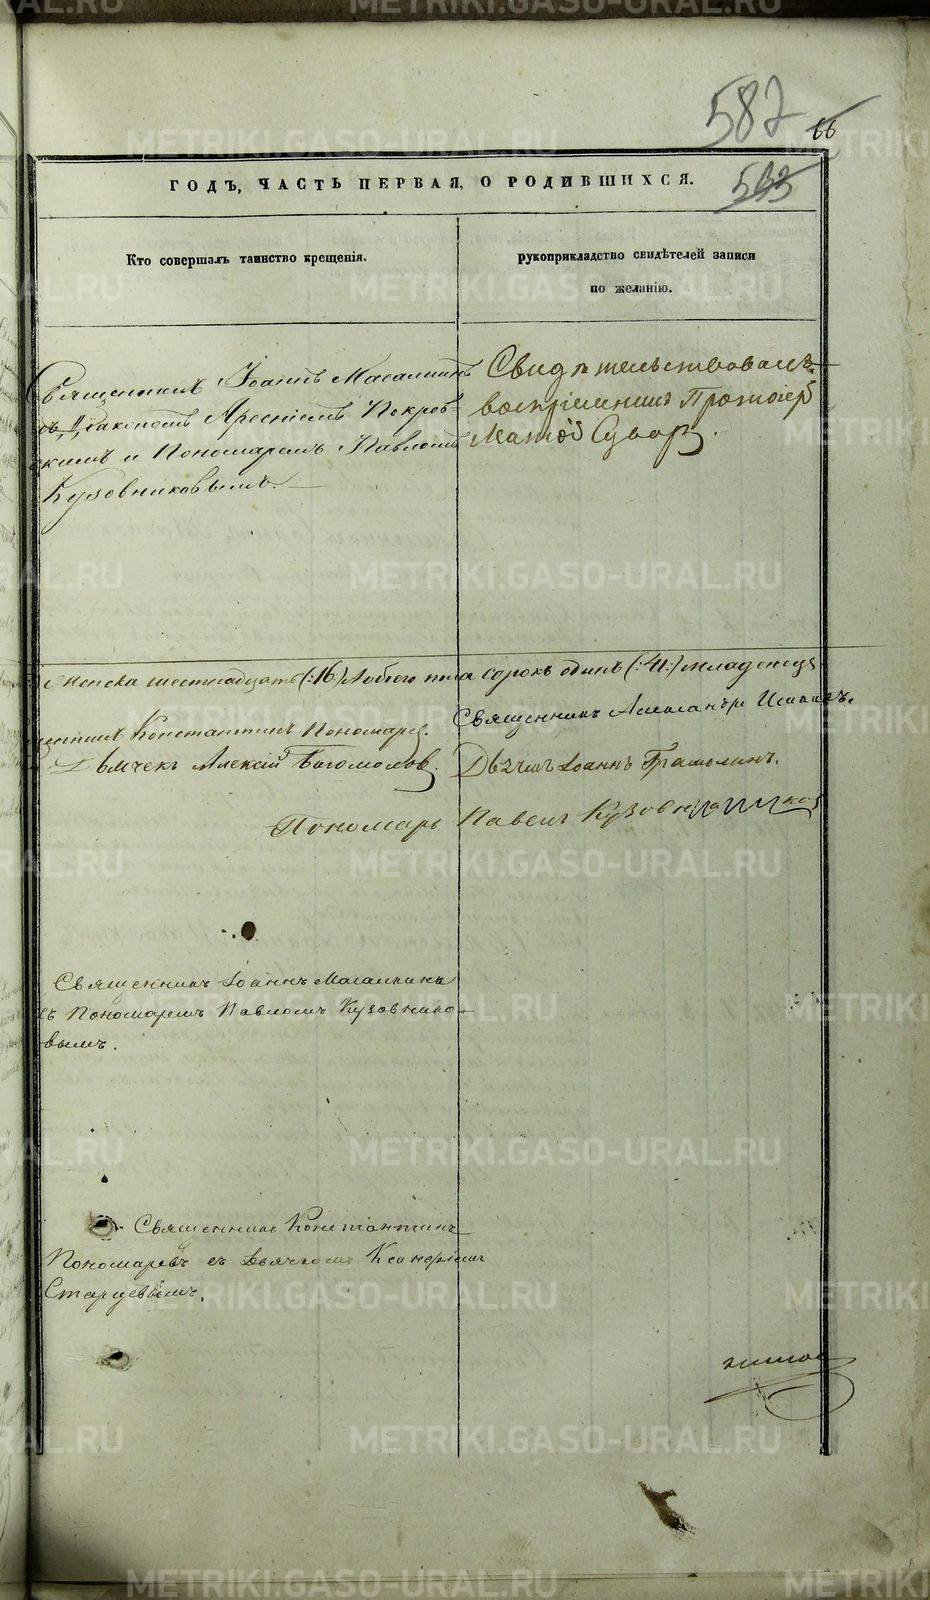 587
66
593
ГОДЪ, ЧАСТЬ ПЕРВАЯ, О РОДИВШИХСЯ.
Кто совершалъ таинство крещенія.
рукоприкладство свидѣтелей записи
по желанію.
Священникъ Іоаннъ Масалкинъ
съ Діакономъ Арсеніемъ Покров-
скимъ и Пономаремъ Павломъ
Кузовниковымъ.
Свидѣтельствовалъ
воспріемникъ Протоіер
Матѳій
женска шестнадцать (:16) Обоего пола сорокъ одинъ (:41:) младенецъ
Константинъ Пономарев.
Священникъ Александръ
Дьячекъ Алексій Богомолов.
Дьячекъ Іоаннъ
Пономарь Павелъ Кузовников
Священникъ Іоаннъ Масалкинъ
съ Пономаремъ Павломъ Кузовнико-
вымъ.
Священникъ Константинъ
Пономаревъ съ Дьячкомъ
Старцевымъ.
METRIKI.GASO-URAL.RU